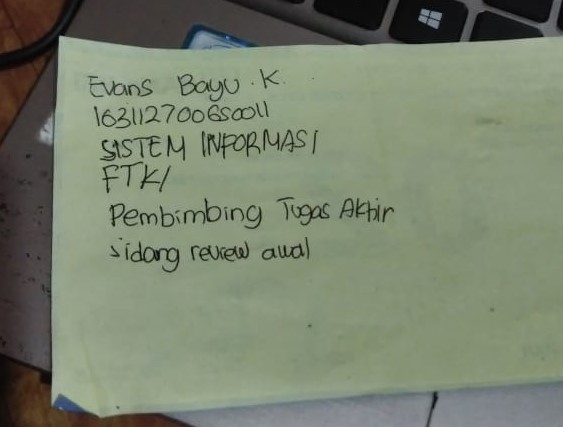 Evans Bayu . K.
163112700650011
SISTEM INFORMASI
FTKI
Pembimbing Tugas Akhir
sidang review awal